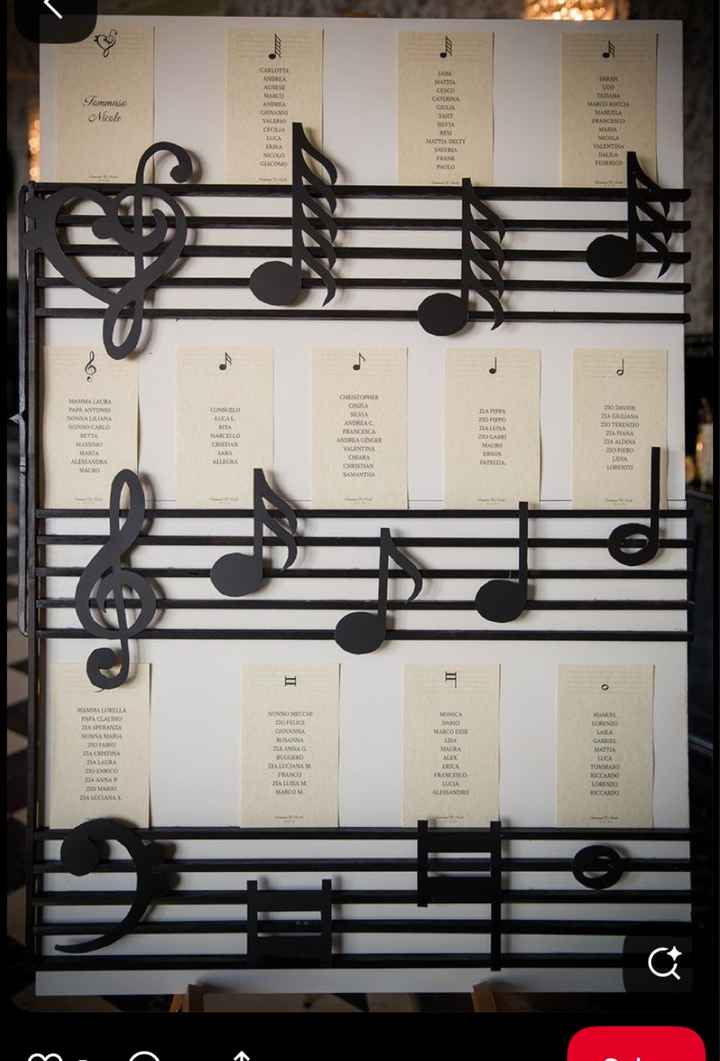 Tommaso
Nicole
CARLOTTA
ANDREA
AGNESE
MARCO
ANDREA
GIOVANNI
VALERIO
CECILIA
LUCA
ERIKA
NICOLO
GIACOMO
MATTIA
CESCO
CATERINA
GIULIA
SANT
SILVIA
RESI
MATTIA DELTY
SAVERIA
FRANK
PAOLO
SARAH
UGO
TIZIANA
MARCO ROCCIA
MANUELA
FRANCESCO
MARIA
NICOLA
VALENTINA
DALILA
FEDERICO
MAMMA LAURA
PAPA ANTONIO
NONNA LILIANA
NONNO CARLO
BETTA
MASSIMO
MARTA
ALESSANDRA
MAURO
CONSUELO
LUCA L.
RITA
MARCELLO
CRISTIAN
SARA
ALLEGRA
CHRISTOPHER
CINZIA
SILVIA
ANDREA C.
FRANCESCA
ANDREA GINGER
VALENTINA
CHIARA
CHRISTIAN
SAMANTHA
ZIA PIPPA
ZIO PIPPO
ZIA LUISA
ZIO GABRI
MAURO
ERSON
PATRIZIA
ZIO DAVIDE
ZIA GIULIANA
ZIO TERENZIO
ZIA IVANA
ZIA ALDINA
ZIO PIERO
LIDIA
LORENZO
MAMMA LORELLA
PAPA CLAUDIO
ZIA SPERANZA
NONNA MARIA
ZIO FABIO
ZIA CRISTINA
ZIA LAURA
ZIO ENRICO
ZIA ANNA P.
ZIO MARIO
ZIA LUCIANA A.
NONNO MECCHI
ZIO FELICE
GIOVANNA
ROSANNA
ZIA ANNA G.
RUGGERO
ZIA LUCIANA M.
FRANCO
ZIA LUISA M.
MARCO M.
MONICA
DARIO
MARCO EXIR
LISA
MAURA
ALEX
ERICA
FRANCESCO
LUCIA
ALESSANDRO
MANUEL
LORENZO
LAILA
GABRIEL
MATTIA
LUCA
TOMMASO
RICCARDO
LORENZO
RICCARDO